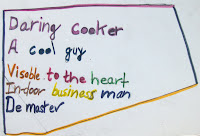 Daring cooker
A cool guy
Visoble to the heart
In-door business man
De master